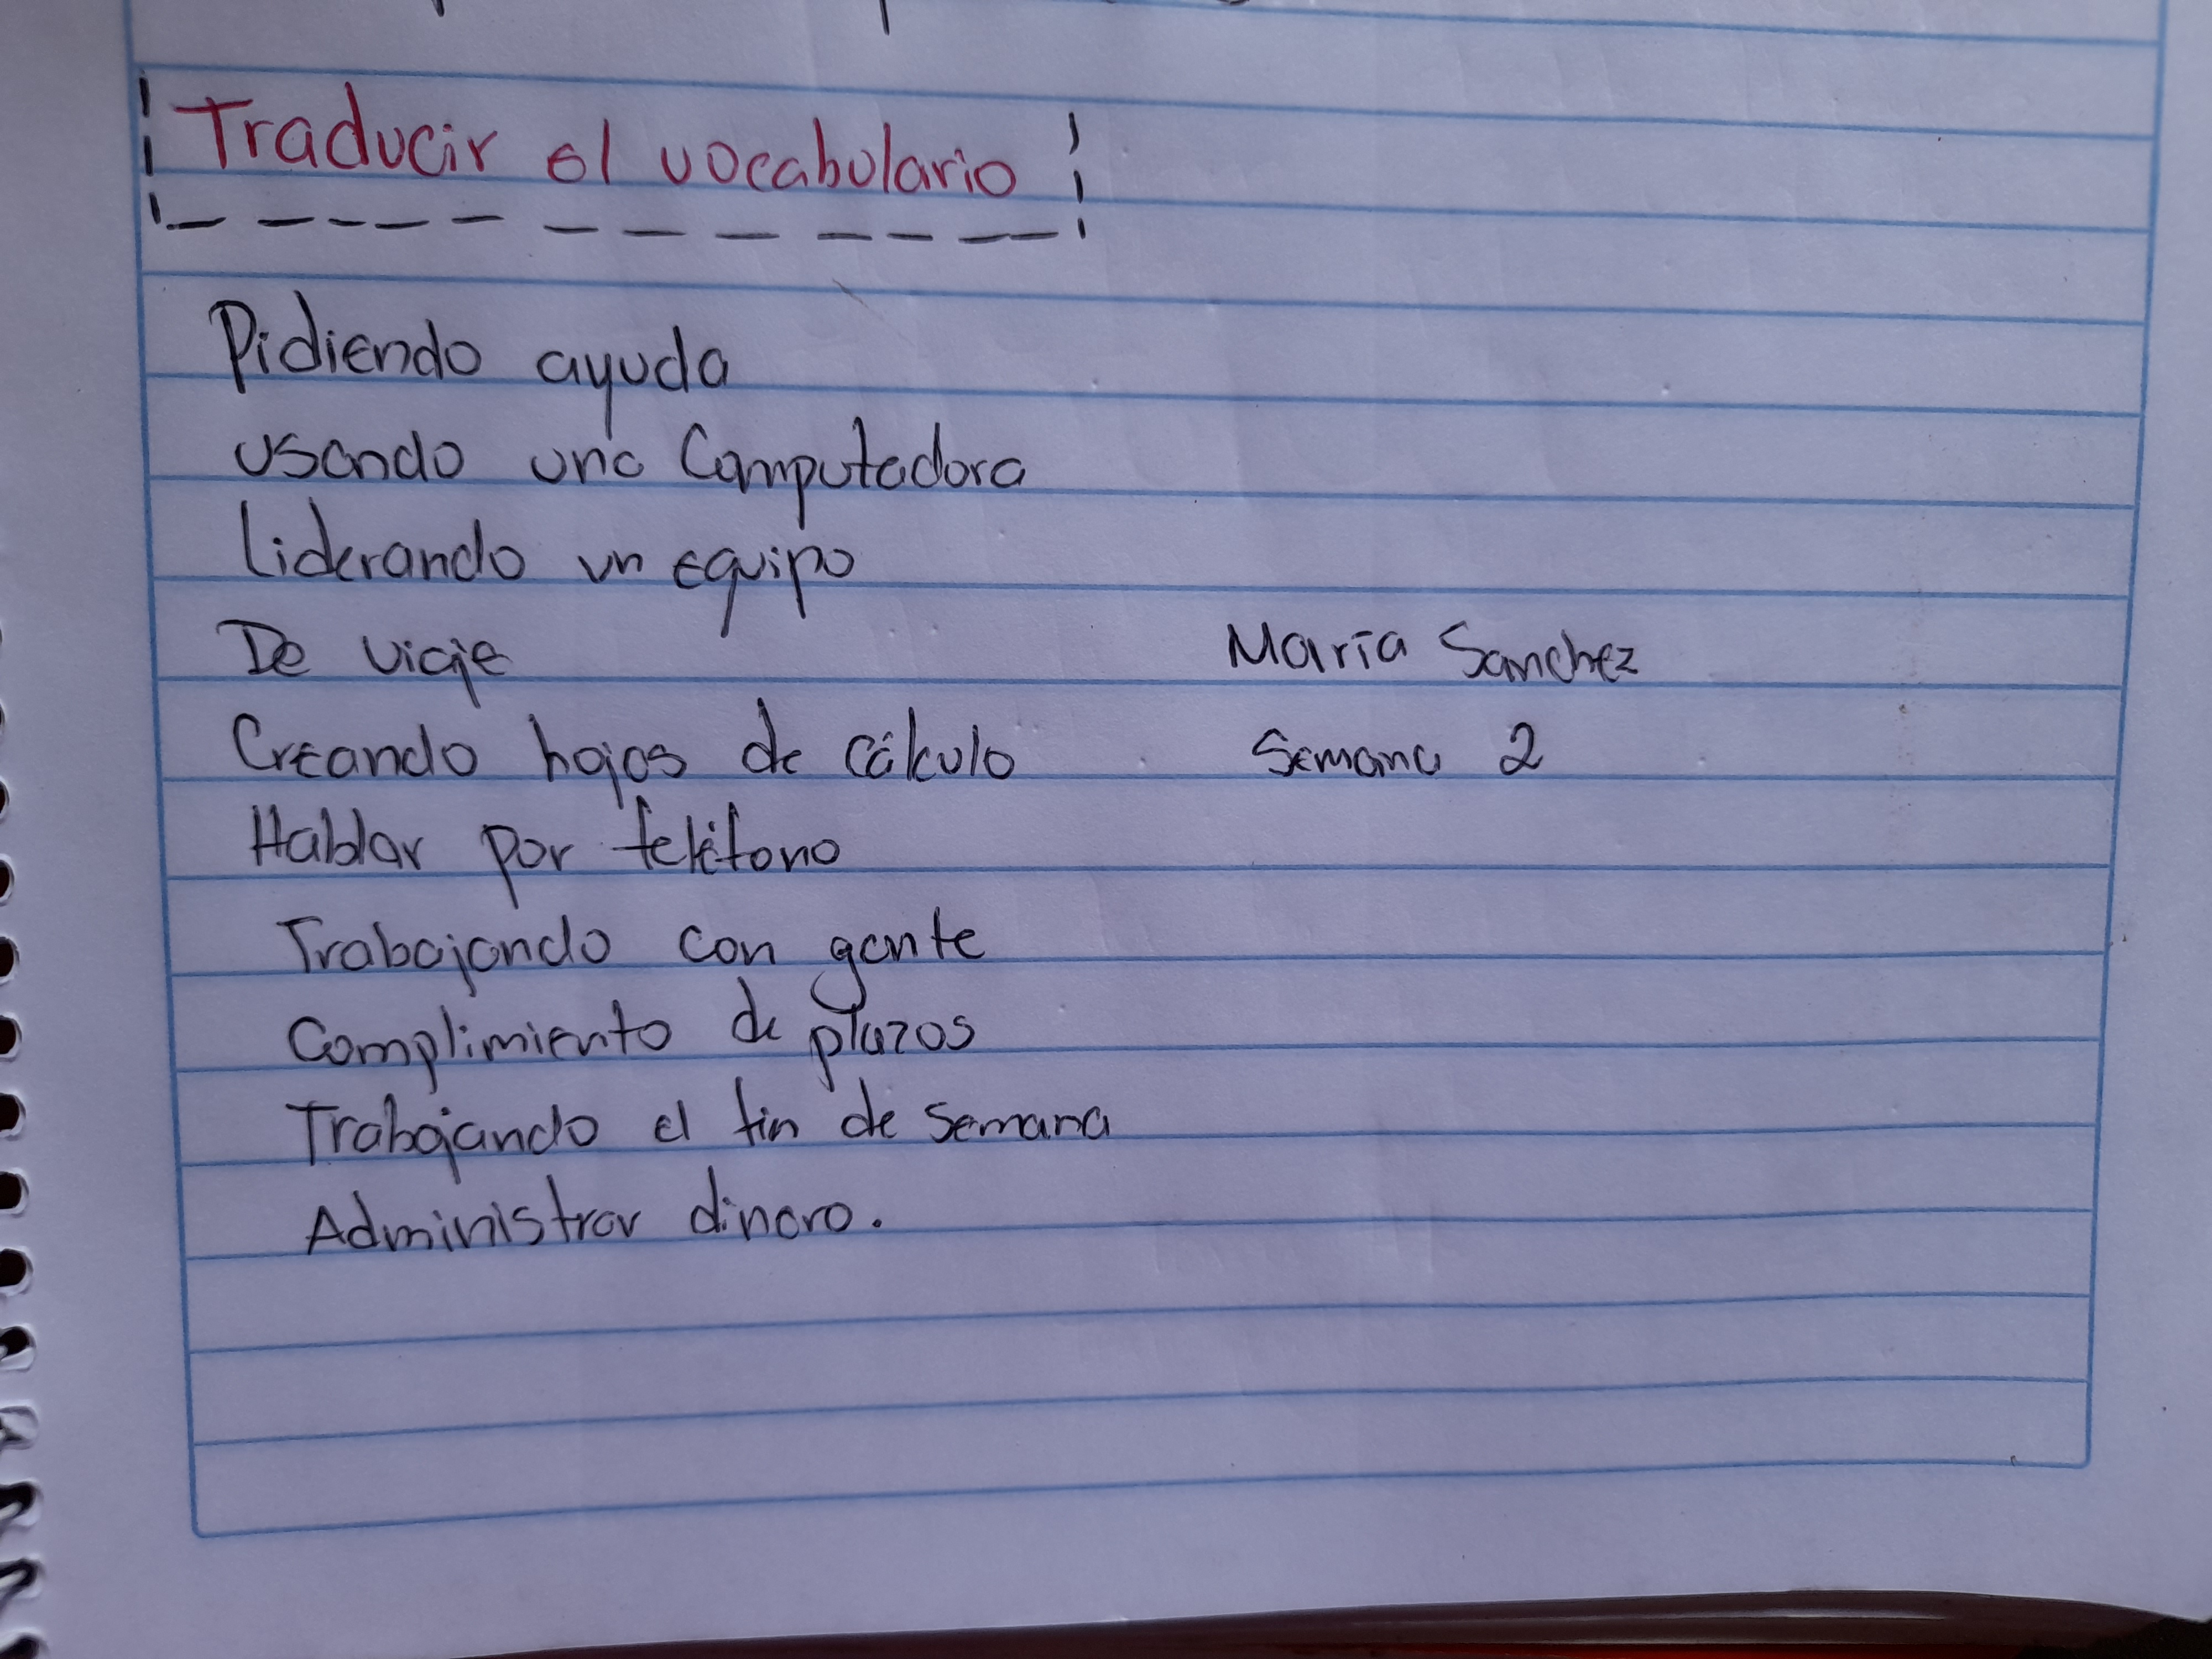 Traducir el vocabulario
Pidiendo ayuda
usando una Computadora
Liderando un equipo
De viaje
María Sanchez
Creando hojas de cálculo
Semana 2
Hablar por teléfono
Trabajando con gente
Complimiento de plazos
Trabajando el fin de semana
Administrar dinero.